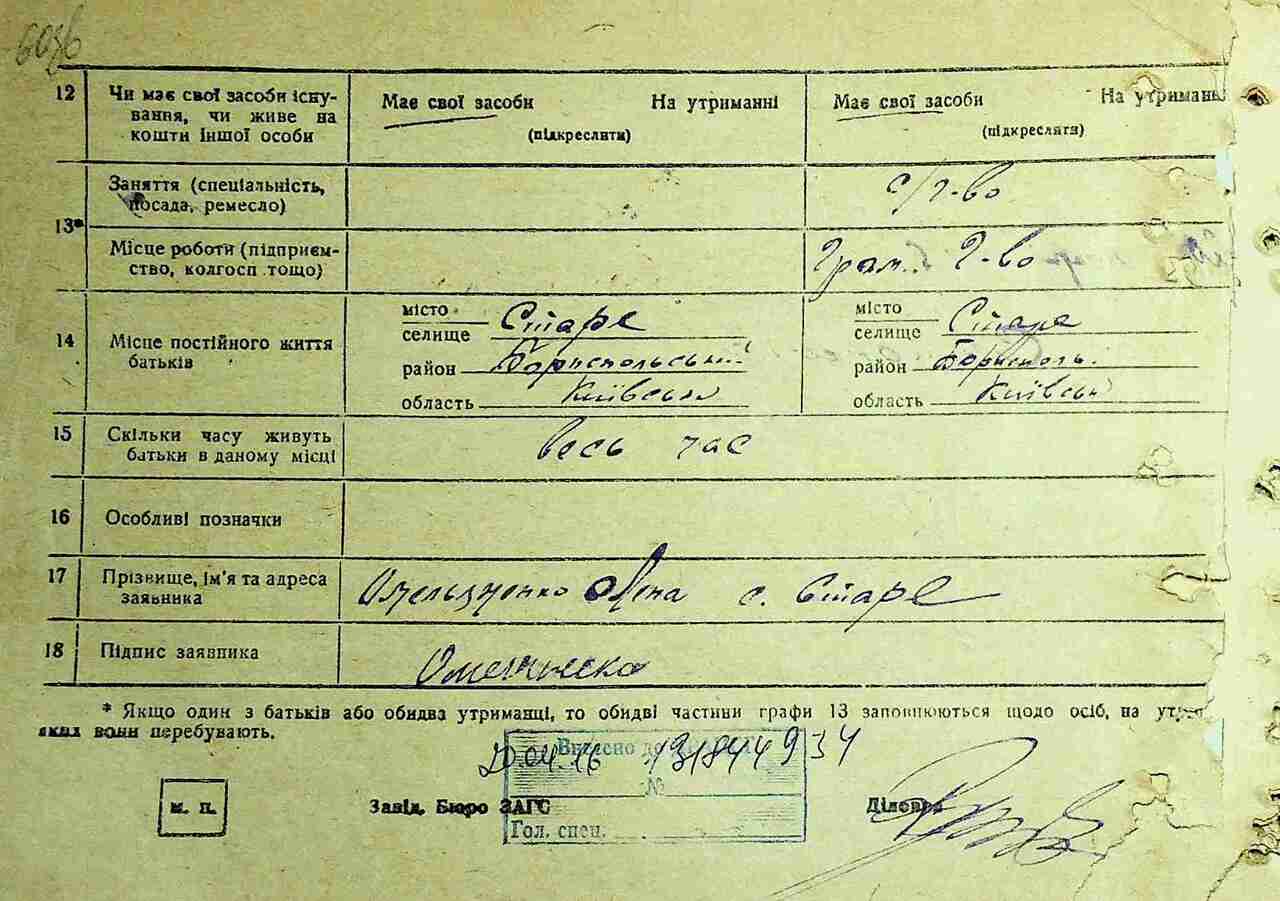 12 Чи має свої засоби існу-
вання, чи живе на
кошти іншої особи
Має свої засоби На утриманні
(підкреслити)
Має свої засоби На утриманні
(підкреслити)
13* Заняття (спеціальність,
посада, ремесло)
с/г-во
Місце роботи (підприєм-
ство, колгосп тощо)
Г-во
14 Місце постійного життя
батьків
місто
селище Старе
район Бориспольський
область Київськ
місто
селище Старе
район Бориспол.
область Київськ
15 Скільки часу живуть
батьки в даному місці
весь час
16 Особливі позначки
17 Прізвище, ім'я та адреса
заявника
Омельяненко Олена с. Старе
18 Підпис заявника
* Якщо один з батьків або обидва утриманці, то обидві частини графи 13 заповнюються щодо осіб, на
яких вони перебувають.
Внесено до
20.04.16 131844934
№
м. п.
Завід. Бюро ЗАГС
Гол. спец.
Діловод